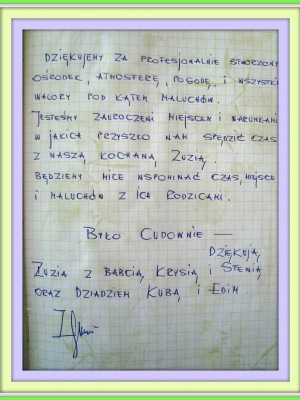 DZIĘKUJEMY ZA PROFESJONALNIE STWORZONY
OŚRODEK, ATMOSFERĘ, POGODĘ I WSZYSTKIE
WALORY POD KĄTEM MALUCHÓW.
JESTEŚMY ZAUROCZENI MIEJSCEM I WARUNKAMI
W JAKICH PRZYSZŁO NAM SPĘDZIĆ CZAS
Z NASZĄ KOCHANĄ ZUZIĄ.
BĘDZIEMY MILE WSPOMINAĆ CZAS, MIEJSCE
I MALUCHÓW Z ICH RODZICAMI.
BYŁO CUDOWNIE —
DZIĘKUJĄ,
ZUZIA Z BABCIĄ KRYSIĄ I STENIĄ
ORAZ DZIADZIEM KUBĄ I EDIM